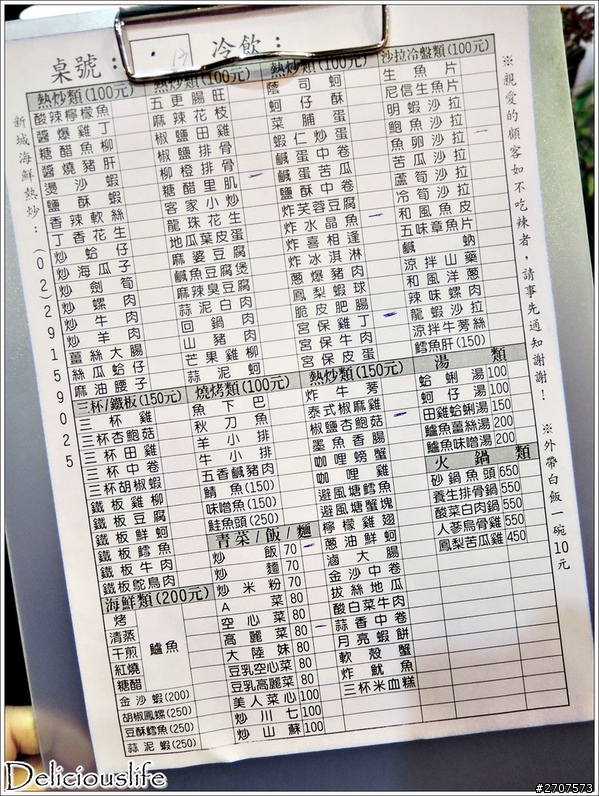 桌號:
冷飲:
新城海鮮熱炒:(02)29159025
熱炒類(100元)
酸辣檸檬魚
醬爆雞丁
糖醋魚柳
醬燒豬肝
燙沙蝦
鹽酥蝦
香辣軟絲
丁香花生
炒蛤仔
炒海瓜子
炒劍筍
炒螺肉
炒牛肉
炒羊肉
薑絲大腸
絲瓜蛤仔
麻油腰子
三杯/鐵板(150元)
三杯雞
三杯杏鮑菇
三杯田雞
三杯中卷
三杯胡椒蝦
鐵板雞柳
鐵板豆腐
鐵板鮮蚵
鐵板鱈魚
鐵板牛肉
鐵板鴕鳥肉
海鮮類(200元)
烤
清蒸
干煎
紅燒
糖醋
鱸魚
金沙蝦(200)
胡椒鳳螺(250)
豆酥鱈魚(250)
蒜泥蝦(250)
熱炒類(100元)
五更腸旺
麻辣花枝
椒鹽田雞
椒鹽排骨
柳橙排骨
糖醋里肌
客家小炒
龍珠花生
地瓜葉皮蛋
麻婆豆腐
鹹魚豆腐煲
麻辣臭豆腐
蒜泥白肉
回鍋肉
山豬肉
芒果雞柳
蒜泥蚵
燒烤類(100元)
魚下巴
秋刀魚
羊小排
牛小排
五香鹹豬肉
鯖魚(150)
味噌魚(150)
鮭魚頭(250)
青菜/飯/麵
炒飯 70
炒麵 70
炒米粉 70
A菜 80
空心菜 80
高麗菜 80
大陸妹 80
豆乳空心菜 80
豆乳高麗菜 80
美人菜心 100
炒川七 100
炒山蘇 100
熱炒類(100元)
蔭司蚵
蚵仔酥
菜脯蛋
蝦仁炒蛋
鹹蛋中卷
鹹蛋苦瓜
鹽酥中卷
炸芙蓉豆腐
炸水晶魚
炸喜相逢
炸冰淇淋
蔥爆豬肉
鳳梨蝦球
脆皮肥腸
宮保雞丁
宮保牛肉
宮保皮蛋
熱炒類(150元)
炸牛蒡
泰式椒麻雞
椒鹽杏鮑菇
墨魚香腸
咖哩螃蟹
咖哩雞
避風塘鱈魚
避風塘蟹塊
檸檬雞翅
蔥油鮮蚵
滷大腸
金沙中卷
拔絲地瓜
酸白菜牛肉
蒜香中卷
月亮蝦餅
軟殼蟹
炸魷魚
三杯米血糕
沙拉冷盤類(100元)
生魚片
尼信生魚片
明蝦沙拉
鮑魚沙拉
魚卵沙拉
苦瓜沙拉
蘆筍沙拉
冷筍沙拉
和風魚皮
五味章魚片
鹹蚋
涼拌山藥
和風洋蔥
辣味螺肉
龍蝦沙拉
涼拌牛蒡絲
鱈魚肝(150)
湯類
蛤蜊湯 100
蚵仔湯 100
田雞蛤蜊湯 150
鱸魚薑絲湯 200
鱸魚味噌湯 200
火鍋類
砂鍋魚頭 650
養生排骨鍋 550
酸菜白肉鍋 550
人蔘烏骨雞 550
鳳梨苦瓜雞 450
※親愛的顧客如不吃辣者,請事先通知謝謝!
※外帶白飯一碗10元
Deliciouslife
#2707573